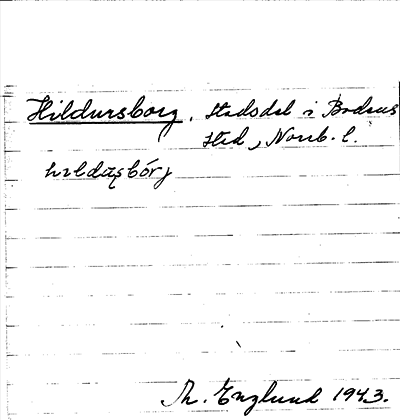 Hildursborg, stadsdel i Bodens
sted, Norrb. l.
hildaşbórj
Th. Englund 1943.